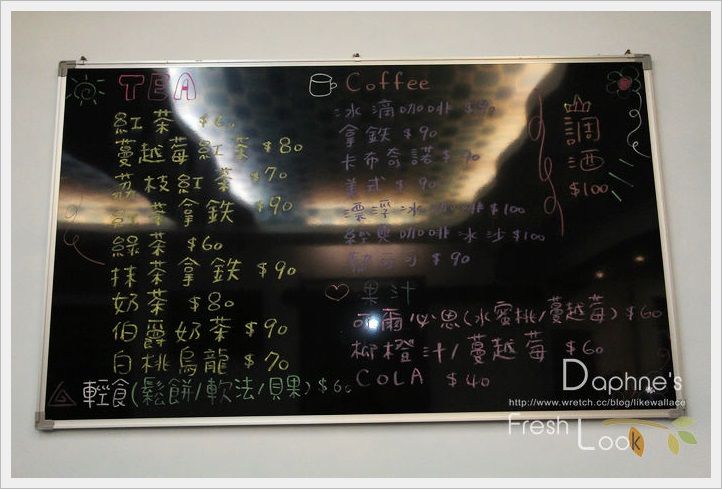 TEA
紅茶 $60
蔓越莓紅茶 $80
荔枝紅茶 $70
紅茶拿鉄 $90
綠茶 $60
抹茶拿鉄 $90
奶茶 $80
伯爵奶茶 $90
白桃烏龍 $70
輕食(鬆餅/軟法/貝果) $60
Coffee
冰滴咖啡 $90
拿鉄 $90
卡布奇諾 $90
美式 $90
漂浮冰咖啡 $100
經典咖啡冰沙 $100
熱可可 $90
果汁
可爾必思(水蜜桃/蔓越莓) $60
柳橙汁/蔓越莓 $60
COLA $40
調酒
$100
Daphne's
http://www.wretch.cc/blog/likewallace
Fresh Look